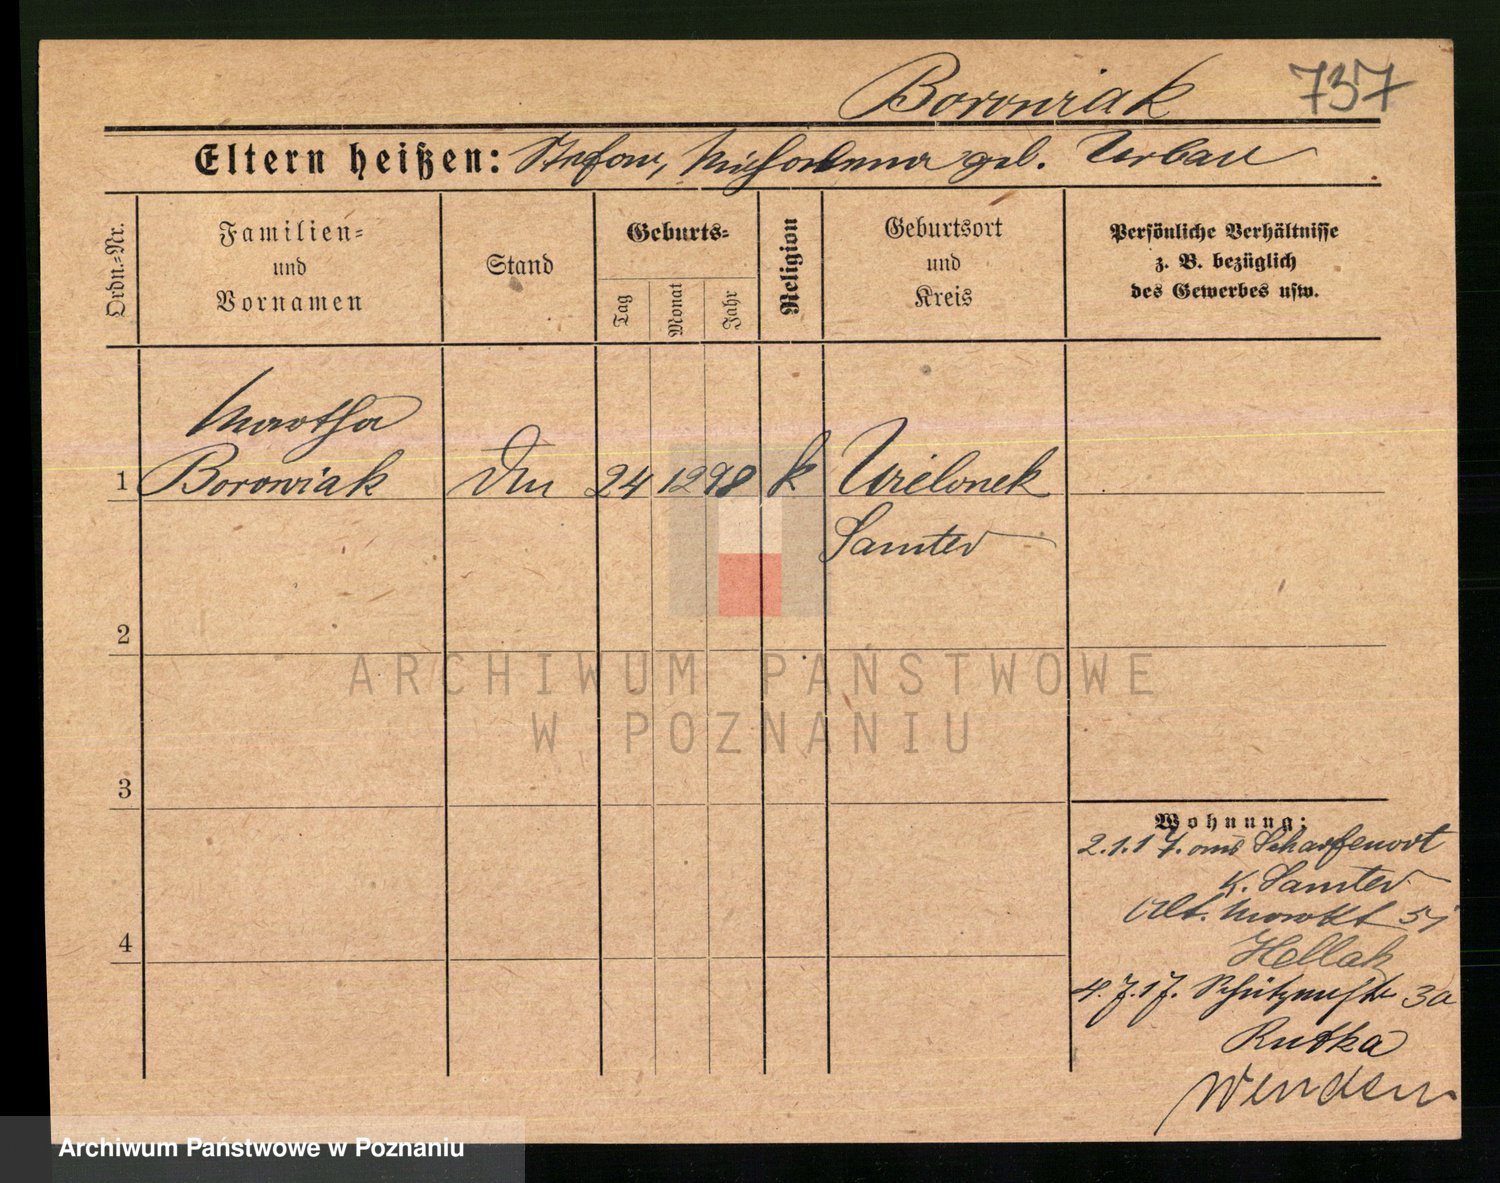 Borowiak 737
Eltern heißen: Stefan, geb. Urban
Ordn.-Nr.
Familien-
und
Vornamen
Stand
Geburts-
Tag
Monat
Jahr
Religion
Geburtsort
und
Kreis
Persönliche Verhältnisse
z. B. bezüglich
des Gewerbes usw.
Martha
1 Borowiak 24 12 98 k Wielonek
Samter
2
ARCHIWUM PAŃSTWOWE
W POZNANIU
3
Wohnung:
2.1.17. aus Scharfenort
K. Samter
Alt. Markt 51
4
Hellak
4.7.17. Schützenstr 3a
Rutka
Wenden
Archiwum Państwowe w Poznaniu